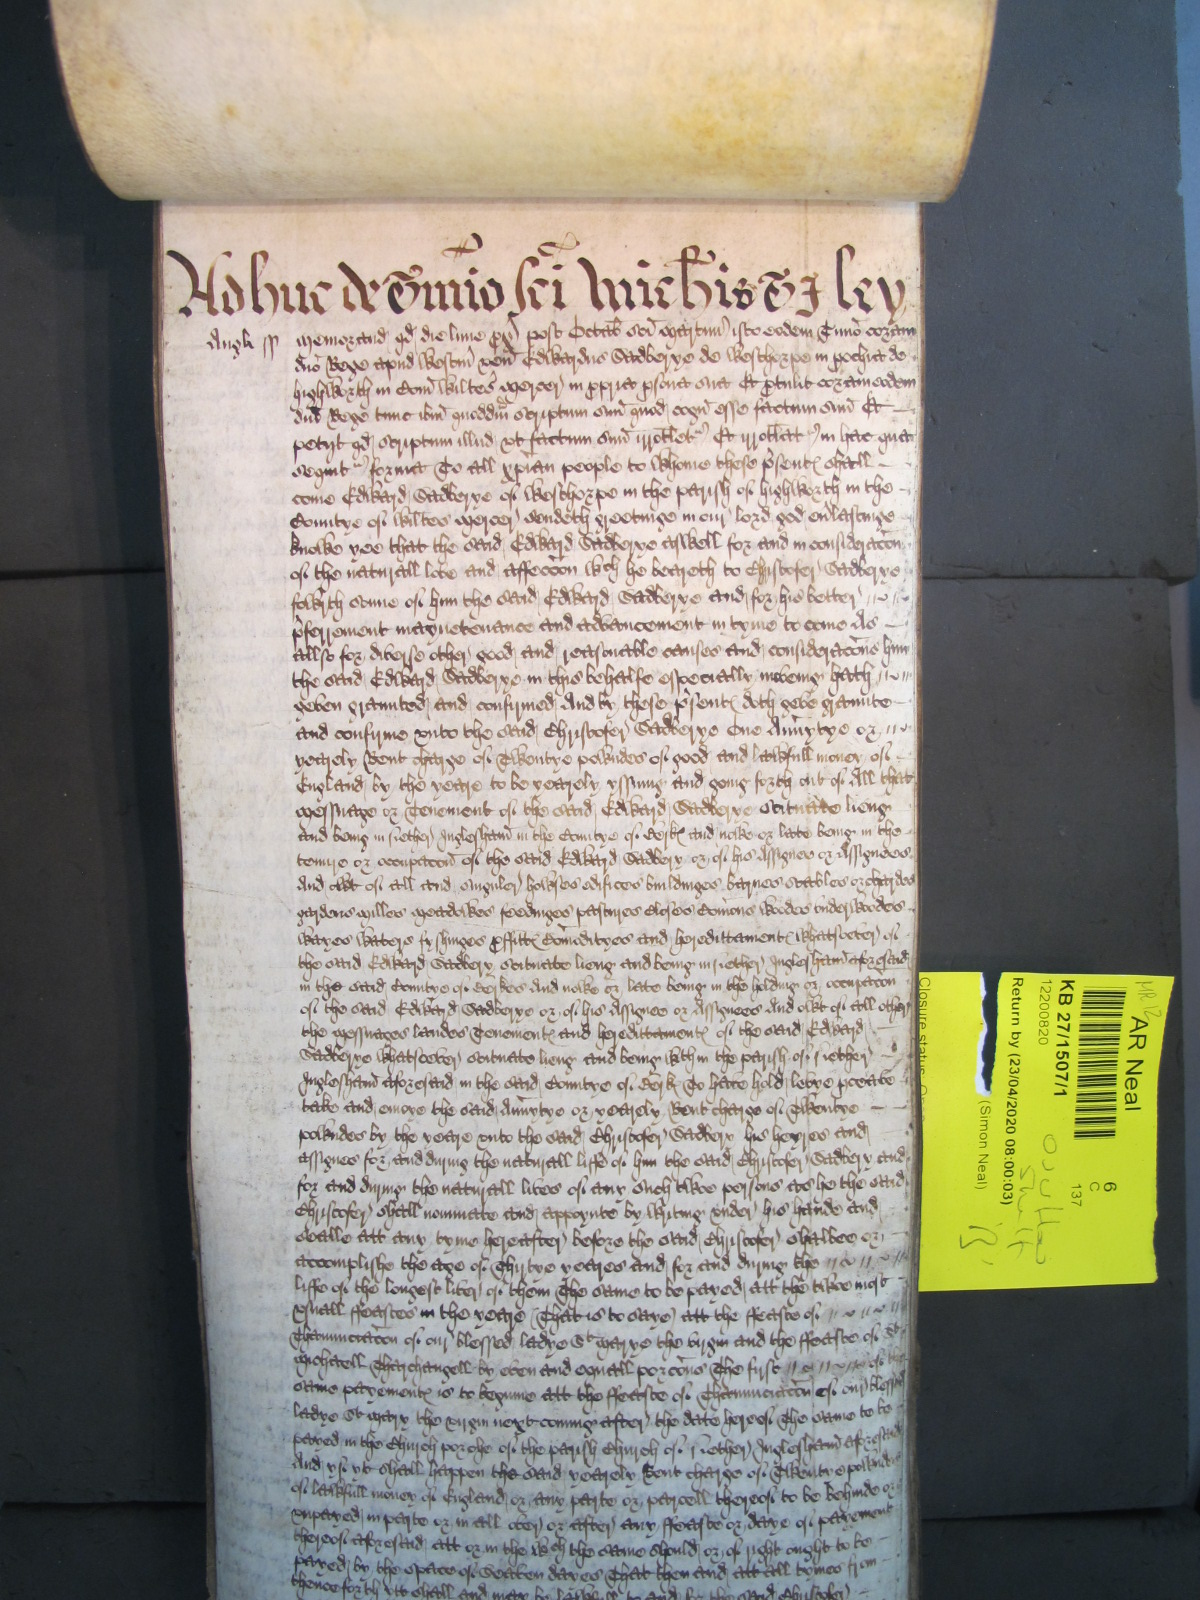 Adhuc de Tmio sci Mich'is T J ley
Angl ss
Memorand qd die lune px post Octab sci Martini isto eodem Tmio coram
dno Rege apud Westm ven Edwardus Sadberye de Westhorpe in pochia de
highworth in Com Wiltes mercer in ppria psona sua Et ptulit coram eodem
dno Rege tunc ibm quoddam scriptum suu quod cogn esse factum suu Et
petijt qd scriptum illud ut factum suu irrotlet Et irrotlat in hac que
sequit forma To all xpian people to whome these psent shall
come Edward Sadberye of Westhorpe in the parish of highworth in the
Countye of Wiltes mercer sendeth greetinge in our lord god evlastinge
knowe yee that the said Edward Sadberye aswell for and in consideracon
of the naturall love and affeccon wch he beareth to Christofer Sadberye
fowrth sonne of him the said Edward Sadberye and for his better
pferrement maynetenance and advancement in tyme to come As
allso for diverse other good and reasonable causes and consideracons him
the said Edward Sadberye in this behalfe especially moveing hath
geven graunted and confirmed And by these psent doth geve graunte
and confirme unto the said Christofer Sadberye One Anuytye or
yearely Rent charge of Twentye powndes of good and lawfull money of
England by the yeare to be yearely yssuing and going forth out of All that
messuage or Tenement of the said Edward Sadberye scituate lieng
and being in nether Inglesham in the Countye of Berk and nowe or late being in the
tenure or occupacon of the said Edward Sadbery or of his Assignee or Assignees
And owt of all and singuler howses edifices buildinges barnes stables orchardes
gardens milles meadowes feedinges pastures closes Comons woodes underwoodes
wayes waters fyshinges pffitt Comodityes and heredittament whatsoever of
the said Edward Sadbery scituate lieng and being in nether Inglesham aforesaid
in the said Countye of Berkes And nowe or late being in the holding or occupacon
of the said Edward Sadberye or of his Assignee or Assignees And owt of all other
the messuages landes Tenement and heredittament of the said Edward
Sadberye whatsoever scituate lieng and being wthin the parish of nether
Inglesham aforesaid in the said Countye of Berk To have hold levye pceave
take and enioye the said Anuytye or yearely Rent charge of Twentye
powndes by the yeare unto the said Christofer Sadbery his heyres and
assignes for and during the naturall liffe of him the said Christofer Sadbery and
for and during the naturall lives of any such twoe persons as he the said
Christofer shall nominate and appoynte by writing under his hande and
sealle att any tyme hereafter before the said Christofer shalbee or
accomplishe the age of Thirtye yeares and for and during the
liffe of the longest liver of them The same to be payed att the twoe most
usuall ffeastes in the yeare That is to saye att the ffeaste of
Thannunciacon of our blessed ladye St Marye the virgin and the ffeaste of St
Michaell Tharchangell by even and equall porcons The first of the
same payement is to beginne att the ffeaste of Thannunciacon of our blessed
ladye St Mary the virgin next coming after the date hereof The same to be
payed in the Church porche of the parish Church of nether Inglesham aforesaid
And yf yt shall happen the said yearely Rent charge of Twentye powndes
of lawfull money of England or any parte or parcell thereof to be behinde or
unpayed in parte or in all over or after any ffeaste or daye of payement
thereof aforesaid att or in the wch the same should or of right ought to be
payed by the space of Seaven dayes That then and att all tymes from
thence forth ytt shall and may be lawfull to and for the said Christofer
AR Neal
KB 27/1507/1
12200820
Return by (23/04/2020 08:00:03)
(Simon Neal)
6
C
137
Closure status